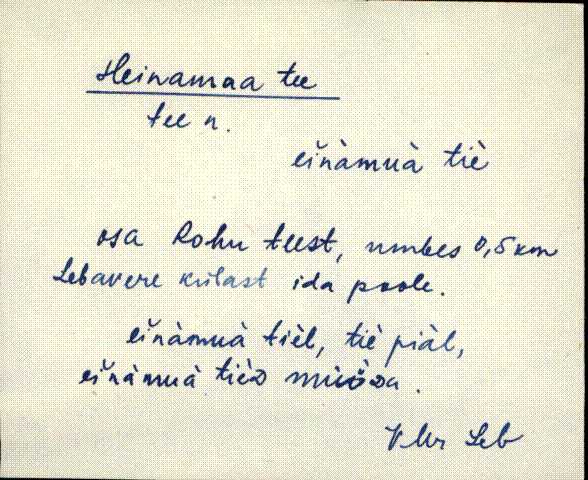 Heinamaa tee
tee n.
eĭnàmuà tiè
osa Rohu teest, umbes 0,5 km
Lebavere külast ida poole.
eĭnàmuà tièl, tiè piàl,
eĭnàmuà tièᴅ müöᴅa.
VMr Leb